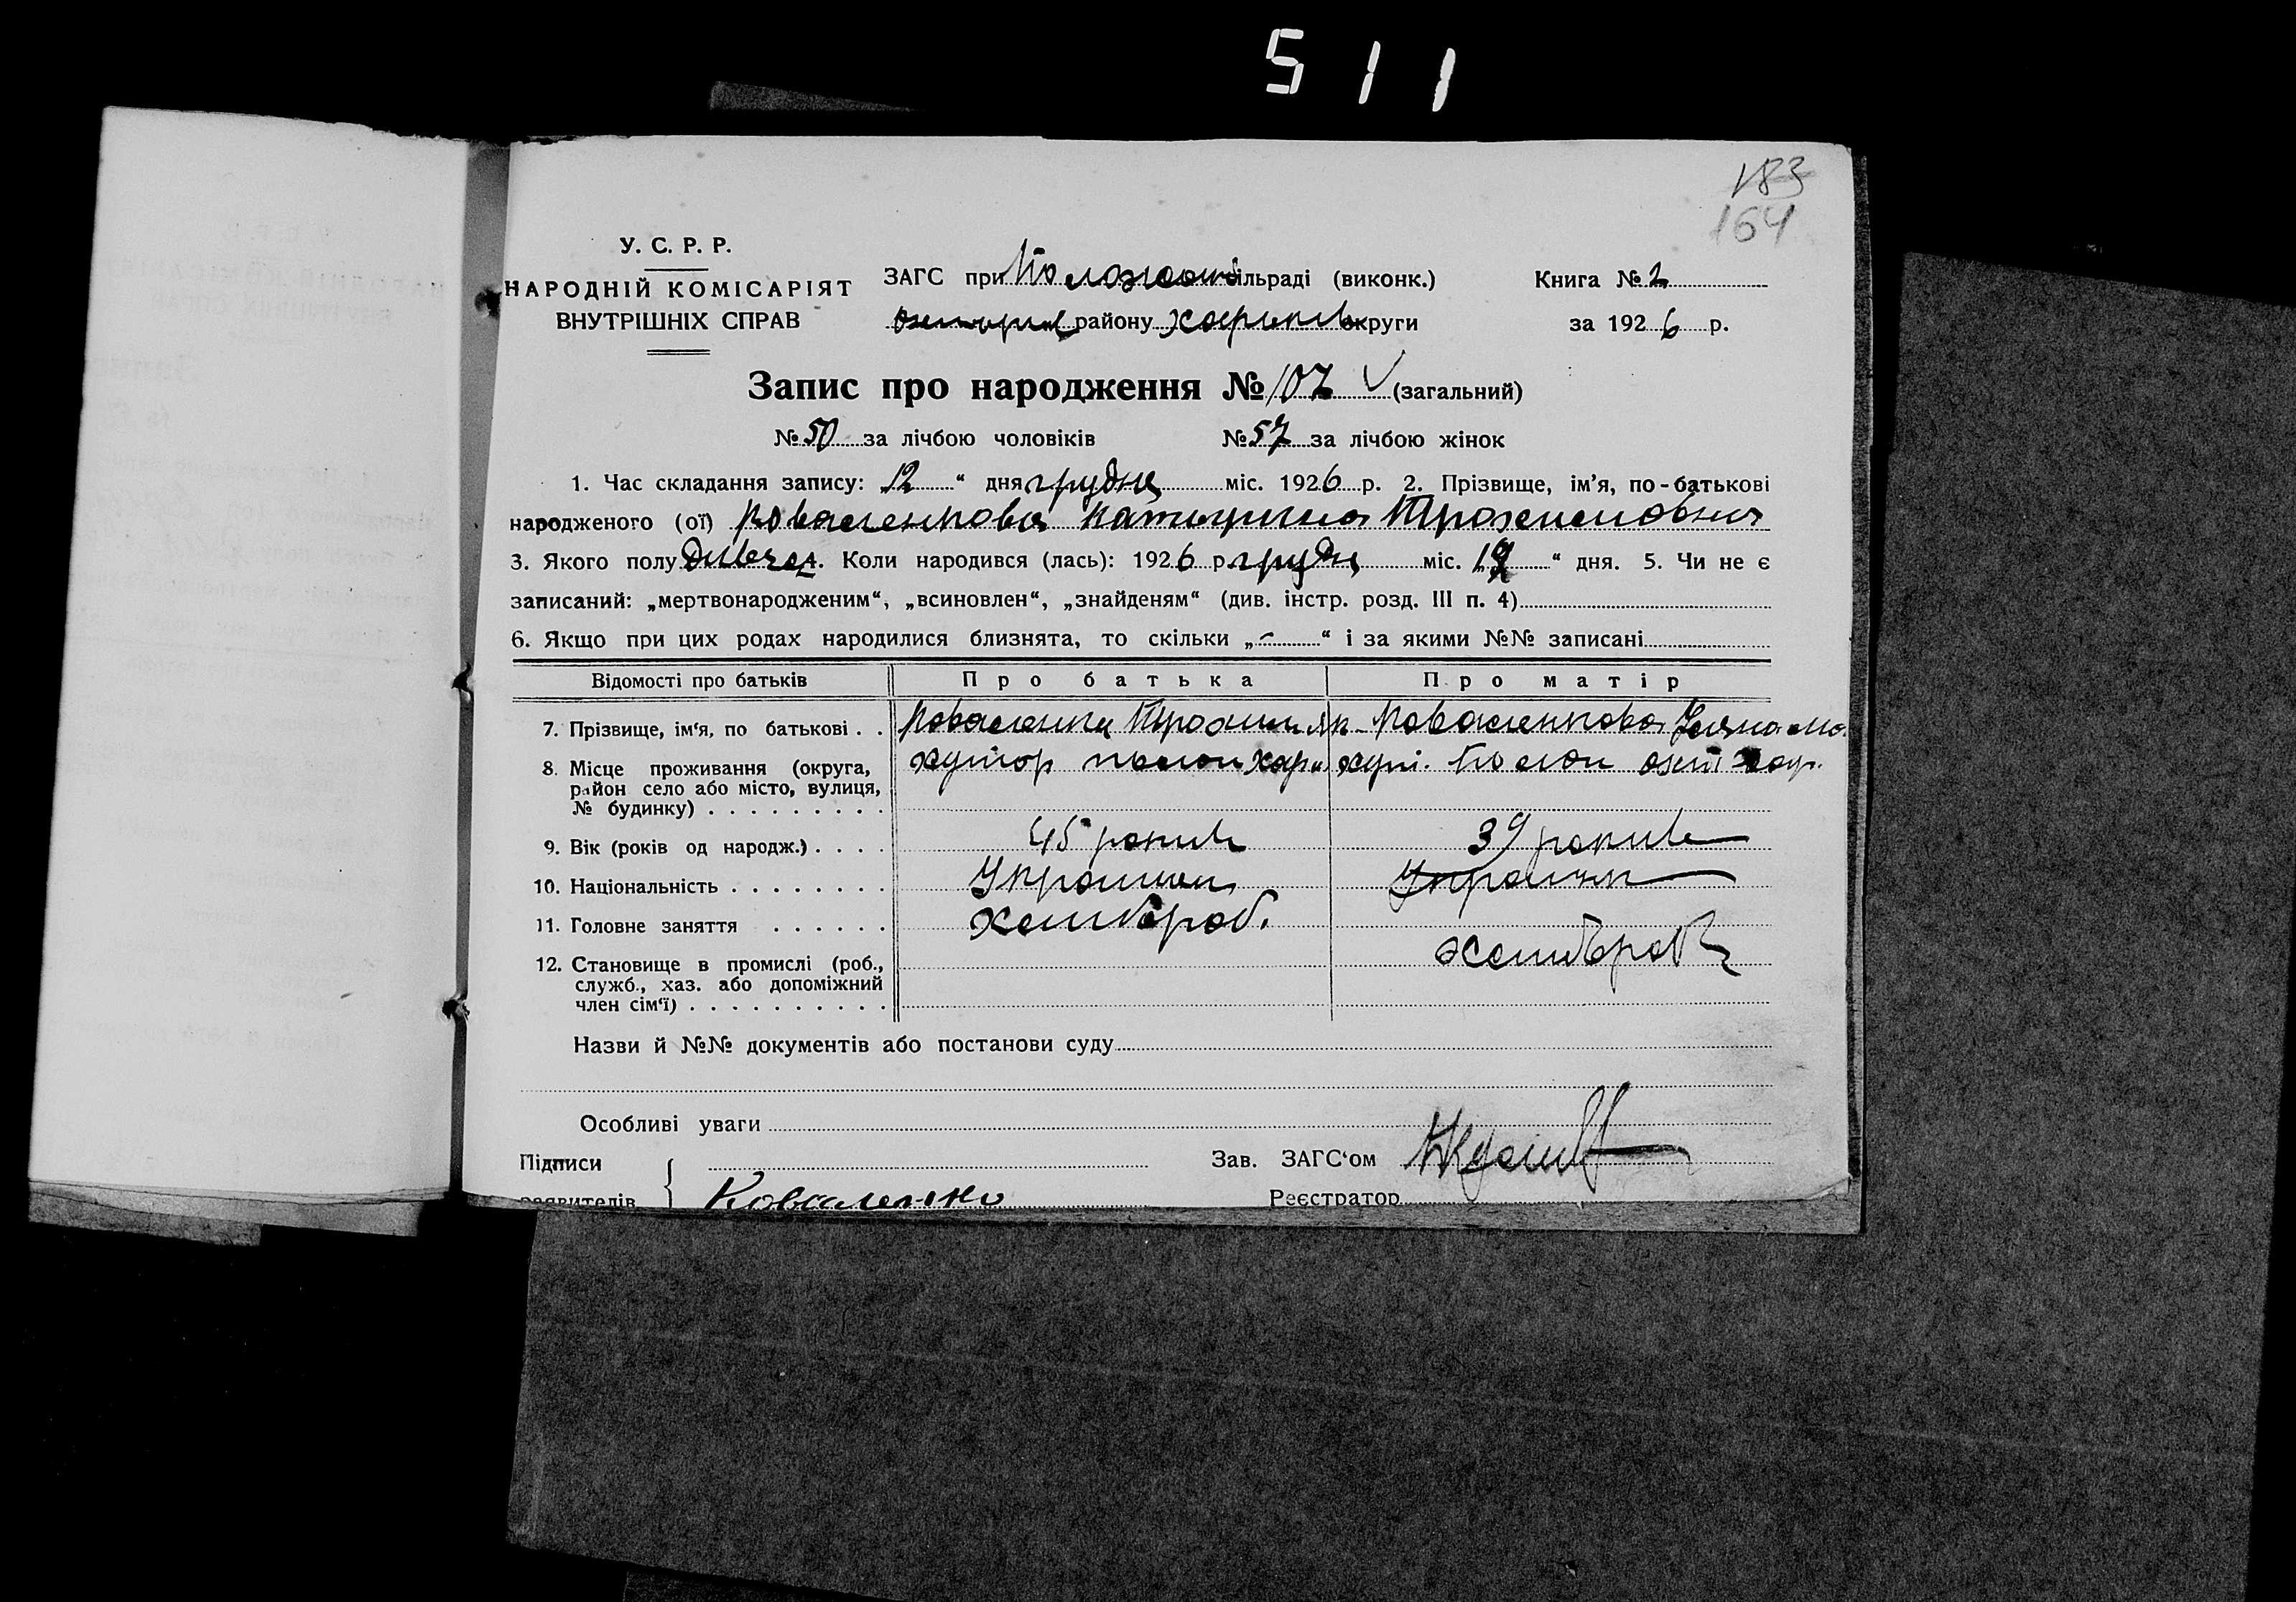 511
183
164
У. С. Р. Р.
НАРОДНІЙ КОМІСАРІЯТ
ВНУТРІШНІХ СПРАВ
ЗАГС при сільраді (виконк.)
району Харьків округи
Книга № 2
за 1926 р.
Запис про народження № 107 (загальний)
№ 50 за лічбою чоловіків № 57 за лічбою жінок
1. Час складання запису: „12“ дня грудня міс. 1926 р. 2. Прізвище, ім’я, по-батькові
народженого (ої) Коваленкова Катирина Трохимовна
3. Якого полу 4. Коли народився (лась): 1926 р. грудня міс. „ “ дня. 5. Чи не є
записаний: „мертвонародженим“, „всиновлен“, „знайденям“ (див. інстр. розд. III п. 4)
6. Якщо при цих родах народилися близнята, то скільки „-“ і за якими №№ записані
Відомості про батьків Про батька Про матір
7. Прізвище, ім‘я, по батькові . . Коваленко Трохим Як Коваленкова Уляна
8. Місце проживання (округа, хутор Харк хут.
район село або місто, вулиця,
№ будинку) . . . . . . . . .
9. Вік (років од народж.) . . . . 45 років 39 років
10. Національність . . . . . . . . Україн Україн
11. Головне заняття . . . . . . Хлибороб.
хлибороб
12. Становище в промислі (роб.,
служб., хаз. або допоміжний
член сім‘ї) . . . . . . . . . .
Назви й №№ документів або постанови суду
Особливі уваги
Підписи
заявителів Коваленко
Зав. ЗАГС‘ом
Реєстратор